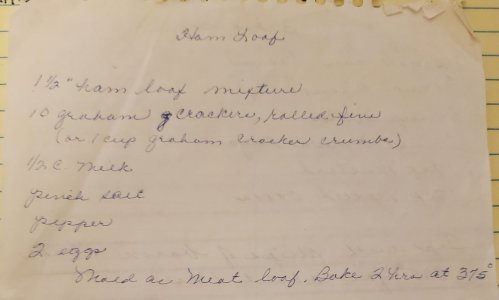 Ham Loaf
1 1/2 " ham loaf mixture
10 graham crackers, rolled fine
(or 1 cup graham cracker crumbs)
1/2 C. Milk
pinch salt
pepper
2 eggs
Mold as Meat loaf. Bake 2 hrs at 375°